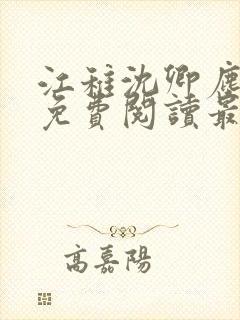 江稚沈卿鹿
免費閱讀最
高嘉陽